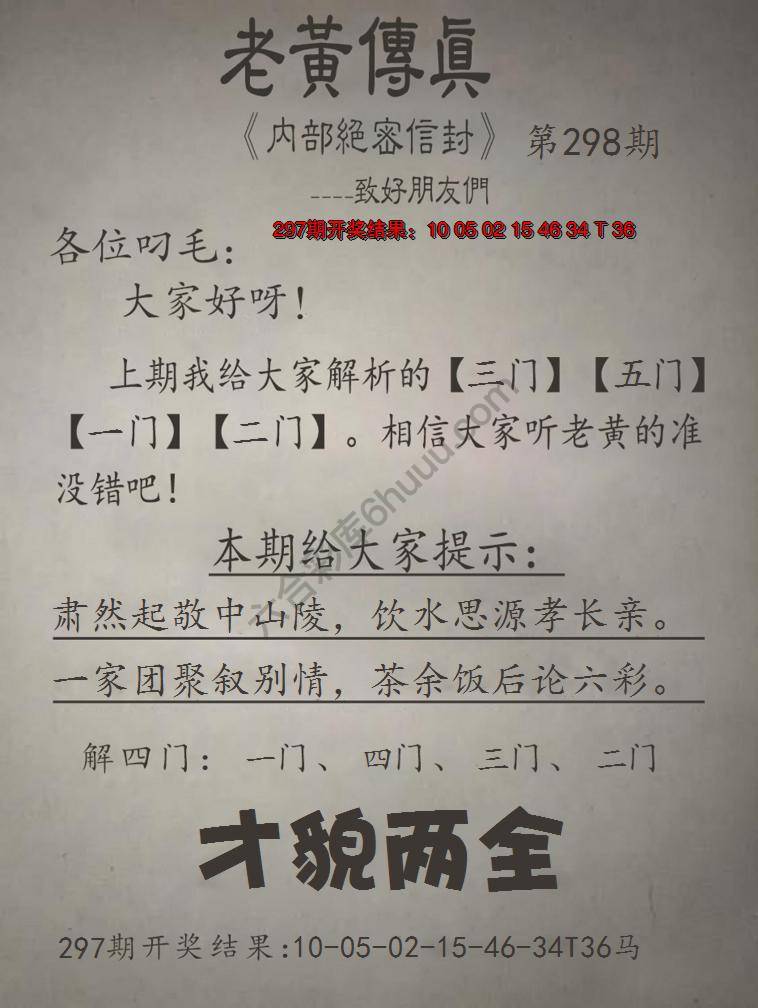 老黃傳真
《内部絕密信封》 第298期
----致好朋友們
297期开奖结果：10 05 02 15 46 34 T 36
各位叼毛：
大家好呀！
上期我给大家解析的【三门】【五门】
【一门】【二门】。相信大家听老黄的准
没错吧！
本期给大家提示：
肃然起敬中山陵，饮水思源孝长亲。
一家团聚叙别情，茶余饭后论六彩。
解四门：一门、四门、三门、二门
才貌两全
297期开奖结果:10-05-02-15-46-34T36马
六合彩库6huuu.com